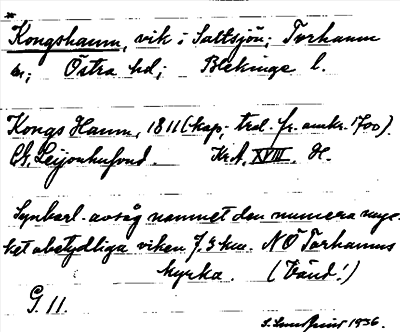 Kongshamn, vik i Saltsjön; Torhamn
sn; Östra hd; Blekinge l.
Kongs Hamn, 1811 (kop; trol. fr. omkr. 1700).
Leijonhufvud. Kr.A. XVIII. H.
Synbarl. avsåg namnet den numera myc-
ket obetydliga viken 7,3 km. NÖ Torhamns
kyrka. (Vänd!)
G. 11.
1936.